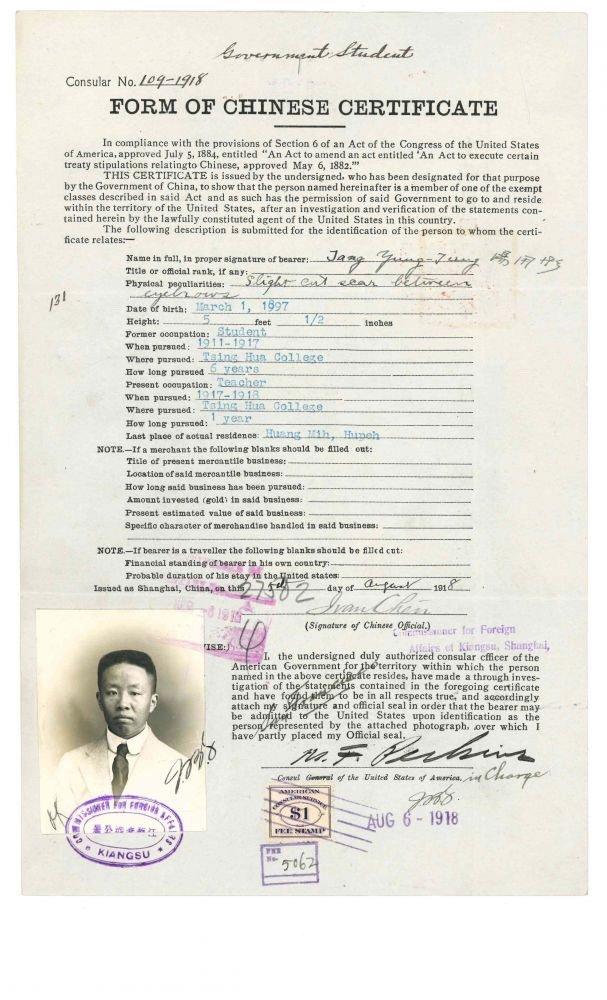 Government Student
Consular No. 109-1918
FORM OF CHINESE CERTIFICATE
In compliance with the provisions of Section 6 of an Act of the Congress of the United States
of America, approved July 5, 1884, entitled "An Act to amend an act entitled 'An Act to execute certain
treaty stipulations relating to Chinese, approved May 6, 1882.'"
THIS CERTIFICATE is issued by the undersigned, who has been designated for that purpose
by the Government of China, to show that the person named hereinafter is a member of one of the exempt
classes described in said Act and as such has the permission of said Government to go to and reside
within the territory of the United States, after an investigation and verification of the statements con-
tained herein by the lawfully constituted agent of the United States in this country.
The following description is submitted for the identification of the person to whom the certi-
ficate relates:—
Name in full, in proper signature of bearer: Tang Yung-Tung
Title or official rank, if any:
Physical peculiarities: Slight cut scar between
eyebrows
131
Date of birth: March 1, 1897
Height: 5 feet 1/2 inches
Former occupation: Student
When pursued: 1911-1917
Where pursued: Tsing Hua College
How long pursued 6 years
Present occupation: Teacher
When pursued: 1917-1918
Where pursued: Tsing Hua College
How long pursued: 1 year
Last place of actual residence: Huang Mih, Hupeh
NOTE.—If a merchant the following blanks should be filled out:
Title of present mercantile business:
Location of said mercantile business:
How long said business has been pursued:
Amount invested (gold) in said business:
Present estimated value of said business:
Specific character of merchandise handled in said business:
NOTE.—If bearer is a traveller the following blanks should be filled out:
Financial standing of bearer in his own country:
Probable duration of his stay in the United states:
Issued as Shanghai, China, on this 5th day of August 1918
27502
Ivan Chen
(Signature of Chinese Official.)
Commissioner for Foreign
Affairs of Kiangsu, Shanghai,
4
VISE:
I, the undersigned duly authorized consular officer of the
American Government for the territory within which the person
named in the above certificate resides, have made a through inves-
tigation of the statements contained in the foregoing certificate
and have found them to be in all respects true, and accordingly
attach my signature and official seal in order that the bearer may
be admitted to the United States upon identification as the
person represented by the attached photograph, over which I
have partly placed my Official seal.
M. F. Perkins
Consul General of the United States of America, in Charge
AMERICAN
CONSULAR SERVICE
$1
FEE STAMP
AUG 6 - 1918
FEE
No. 5062
COMMISSIONER FOR FOREIGN AFFAIRS
KIANGSU